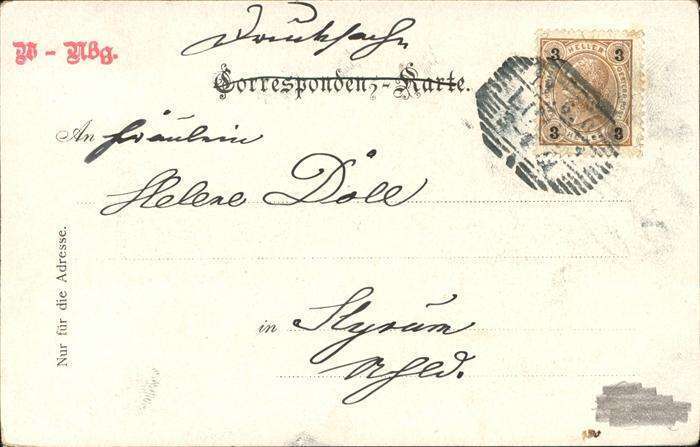 Drucksache
W - Nbg.
Correspondenz-Karte.
3 HELLER 3
3 3
An Fräulein
Helene Döll
Nur für die Adresse.
in Styrum
Rhld.